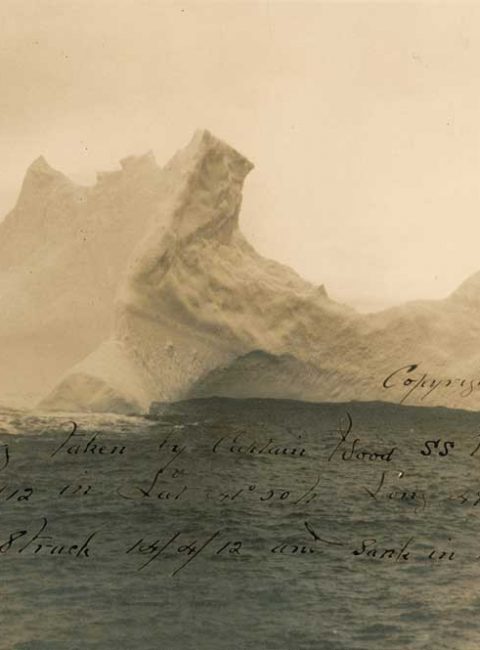 Copyrig
Taken by Captain Wood SS
/12 in Lat 41° 50 N Long 4
Struck 14/4/12 and Sank in